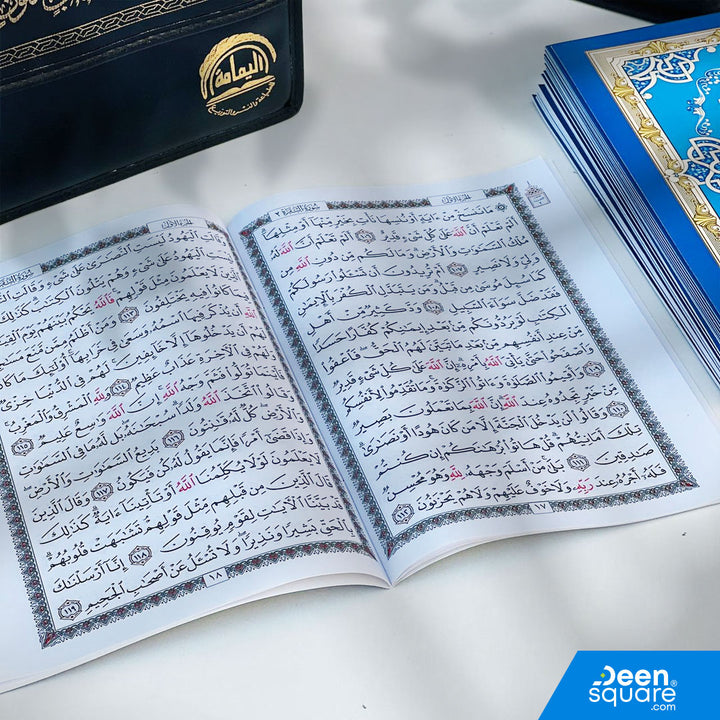 سُورَةُ البَقَرَةِ ٢
الجُزْءُ الأَوَّلُ
۞ مَا نَنسَخْ مِنْ ءَايَةٍ أَوْ نُنسِهَا نَأْتِ بِخَيْرٍ مِّنْهَآ أَوْ مِثْلِهَآ
أَلَمْ تَعْلَمْ أَنَّ ٱللَّهَ عَلَىٰ كُلِّ شَىْءٍ قَدِيرٌ ١٠٦ أَلَمْ تَعْلَمْ أَنَّ ٱللَّهَ لَهُۥ
مُلْكُ ٱلسَّمَٰوَٰتِ وَٱلْأَرْضِ وَمَا لَكُم مِّن دُونِ ٱللَّهِ مِن
وَلِىٍّ وَلَا نَصِيرٍ ١٠٧ أَمْ تُرِيدُونَ أَن تَسْـَٔلُوا۟ رَسُولَكُمْ
كَمَا سُئِلَ مُوسَىٰ مِن قَبْلُ وَمَن يَتَبَدَّلِ ٱلْكُفْرَ بِٱلْإِيمَٰنِ
فَقَدْ ضَلَّ سَوَآءَ ٱلسَّبِيلِ ١٠٨ وَدَّ كَثِيرٌ مِّنْ أَهْلِ
ٱلْكِتَٰبِ لَوْ يَرُدُّونَكُم مِّنۢ بَعْدِ إِيمَٰنِكُمْ كُفَّارًا حَسَدًا
مِّنْ عِندِ أَنفُسِهِم مِّنۢ بَعْدِ مَا تَبَيَّنَ لَهُمُ ٱلْحَقُّ فَٱعْفُوا۟
وَٱصْفَحُوا۟ حَتَّىٰ يَأْتِىَ ٱللَّهُ بِأَمْرِهِۦٓ إِنَّ ٱللَّهَ عَلَىٰ كُلِّ شَىْءٍ قَدِيرٌ
١٠٩ وَأَقِيمُوا۟ ٱلصَّلَوٰةَ وَءَاتُوا۟ ٱلزَّكَوٰةَ وَمَا تُقَدِّمُوا۟ لِأَنفُسِكُم
مِّنْ خَيْرٍ تَجِدُوهُ عِندَ ٱللَّهِ إِنَّ ٱللَّهَ بِمَا تَعْمَلُونَ بَصِيرٌ
١١٠ وَقَالُوا۟ لَن يَدْخُلَ ٱلْجَنَّةَ إِلَّا مَن كَانَ هُودًا أَوْ نَصَٰرَىٰ
تِلْكَ أَمَانِيُّهُمْ قُلْ هَاتُوا۟ بُرْهَٰنَكُمْ إِن كُنتُمْ
صَٰدِقِينَ ١١١ بَلَىٰ مَنْ أَسْلَمَ وَجْهَهُۥ لِلَّهِ وَهُوَ مُحْسِنٌ
فَلَهُۥٓ أَجْرُهُۥ عِندَ رَبِّهِۦ وَلَا خَوْفٌ عَلَيْهِمْ وَلَا هُمْ يَحْزَنُونَ ١١٢
١٧
الجُزْءُ الأَوَّلُ
سُورَةُ البَقَرَةِ ٢
وَقَالَتِ ٱلْيَهُودُ لَيْسَتِ ٱلنَّصَٰرَىٰ عَلَىٰ شَىْءٍ وَقَالَتِ
لَيْسَتِ ٱلْيَهُودُ عَلَىٰ شَىْءٍ وَهُمْ يَتْلُونَ ٱلْكِتَٰبَ كَذَٰلِكَ
ٱلَّذِينَ لَا يَعْلَمُونَ مِثْلَ قَوْلِهِمْ فَٱللَّهُ يَحْكُمُ بَيْنَهُمْ يَوْمَ
كَانُوا۟ فِيهِ يَخْتَلِفُونَ ١١٣ وَمَنْ أَظْلَمُ مِمَّن مَّنَعَ مَسَٰجِدَ
ٱللَّهِ أَن يُذْكَرَ فِيهَا ٱسْمُهُۥ وَسَعَىٰ فِى خَرَابِهَآ أُو۟لَٰٓئِكَ مَا كَانَ
لَهُمْ أَن يَدْخُلُوهَآ إِلَّا خَآئِفِينَ لَهُمْ فِى ٱلدُّنْيَا خِزْىٌ
وَلَهُمْ فِى ٱلْـَٔاخِرَةِ عَذَابٌ عَظِيمٌ ١١٤ وَلِلَّهِ ٱلْمَشْرِقُ وَٱلْمَغْرِبُ
فَأَيْنَمَا تُوَلُّوا۟ فَثَمَّ وَجْهُ ٱللَّهِ إِنَّ ٱللَّهَ وَٰسِعٌ عَلِيمٌ ١١٥
وَقَالُوا۟ ٱتَّخَذَ ٱللَّهُ وَلَدًا سُبْحَٰنَهُۥ بَل لَّهُۥ مَا فِى ٱلسَّمَٰوَٰتِ
وَٱلْأَرْضِ كُلٌّ لَّهُۥ قَٰنِتُونَ ١١٦ بَدِيعُ ٱلسَّمَٰوَٰتِ وَٱلْأَرْضِ
وَإِذَا قَضَىٰٓ أَمْرًا فَإِنَّمَا يَقُولُ لَهُۥ كُن فَيَكُونُ ١١٧ وَقَالَ ٱلَّذِينَ
لَا يَعْلَمُونَ لَوْلَا يُكَلِّمُنَا ٱللَّهُ أَوْ تَأْتِينَآ ءَايَةٌ كَذَٰلِكَ
قَالَ ٱلَّذِينَ مِن قَبْلِهِم مِّثْلَ قَوْلِهِمْ تَشَٰبَهَتْ قُلُوبُهُمْ
قَدْ بَيَّنَّا ٱلْـَٔايَٰتِ لِقَوْمٍ يُوقِنُونَ ١١٨ إِنَّآ أَرْسَلْنَٰكَ
بِٱلْحَقِّ بَشِيرًا وَنَذِيرًا وَلَا تُسْـَٔلُ عَنْ أَصْحَٰبِ ٱلْجَحِيمِ ١١٩
١٨
اليمامة
للطباعة والنشر والتوزيع
Deen
square®
.com